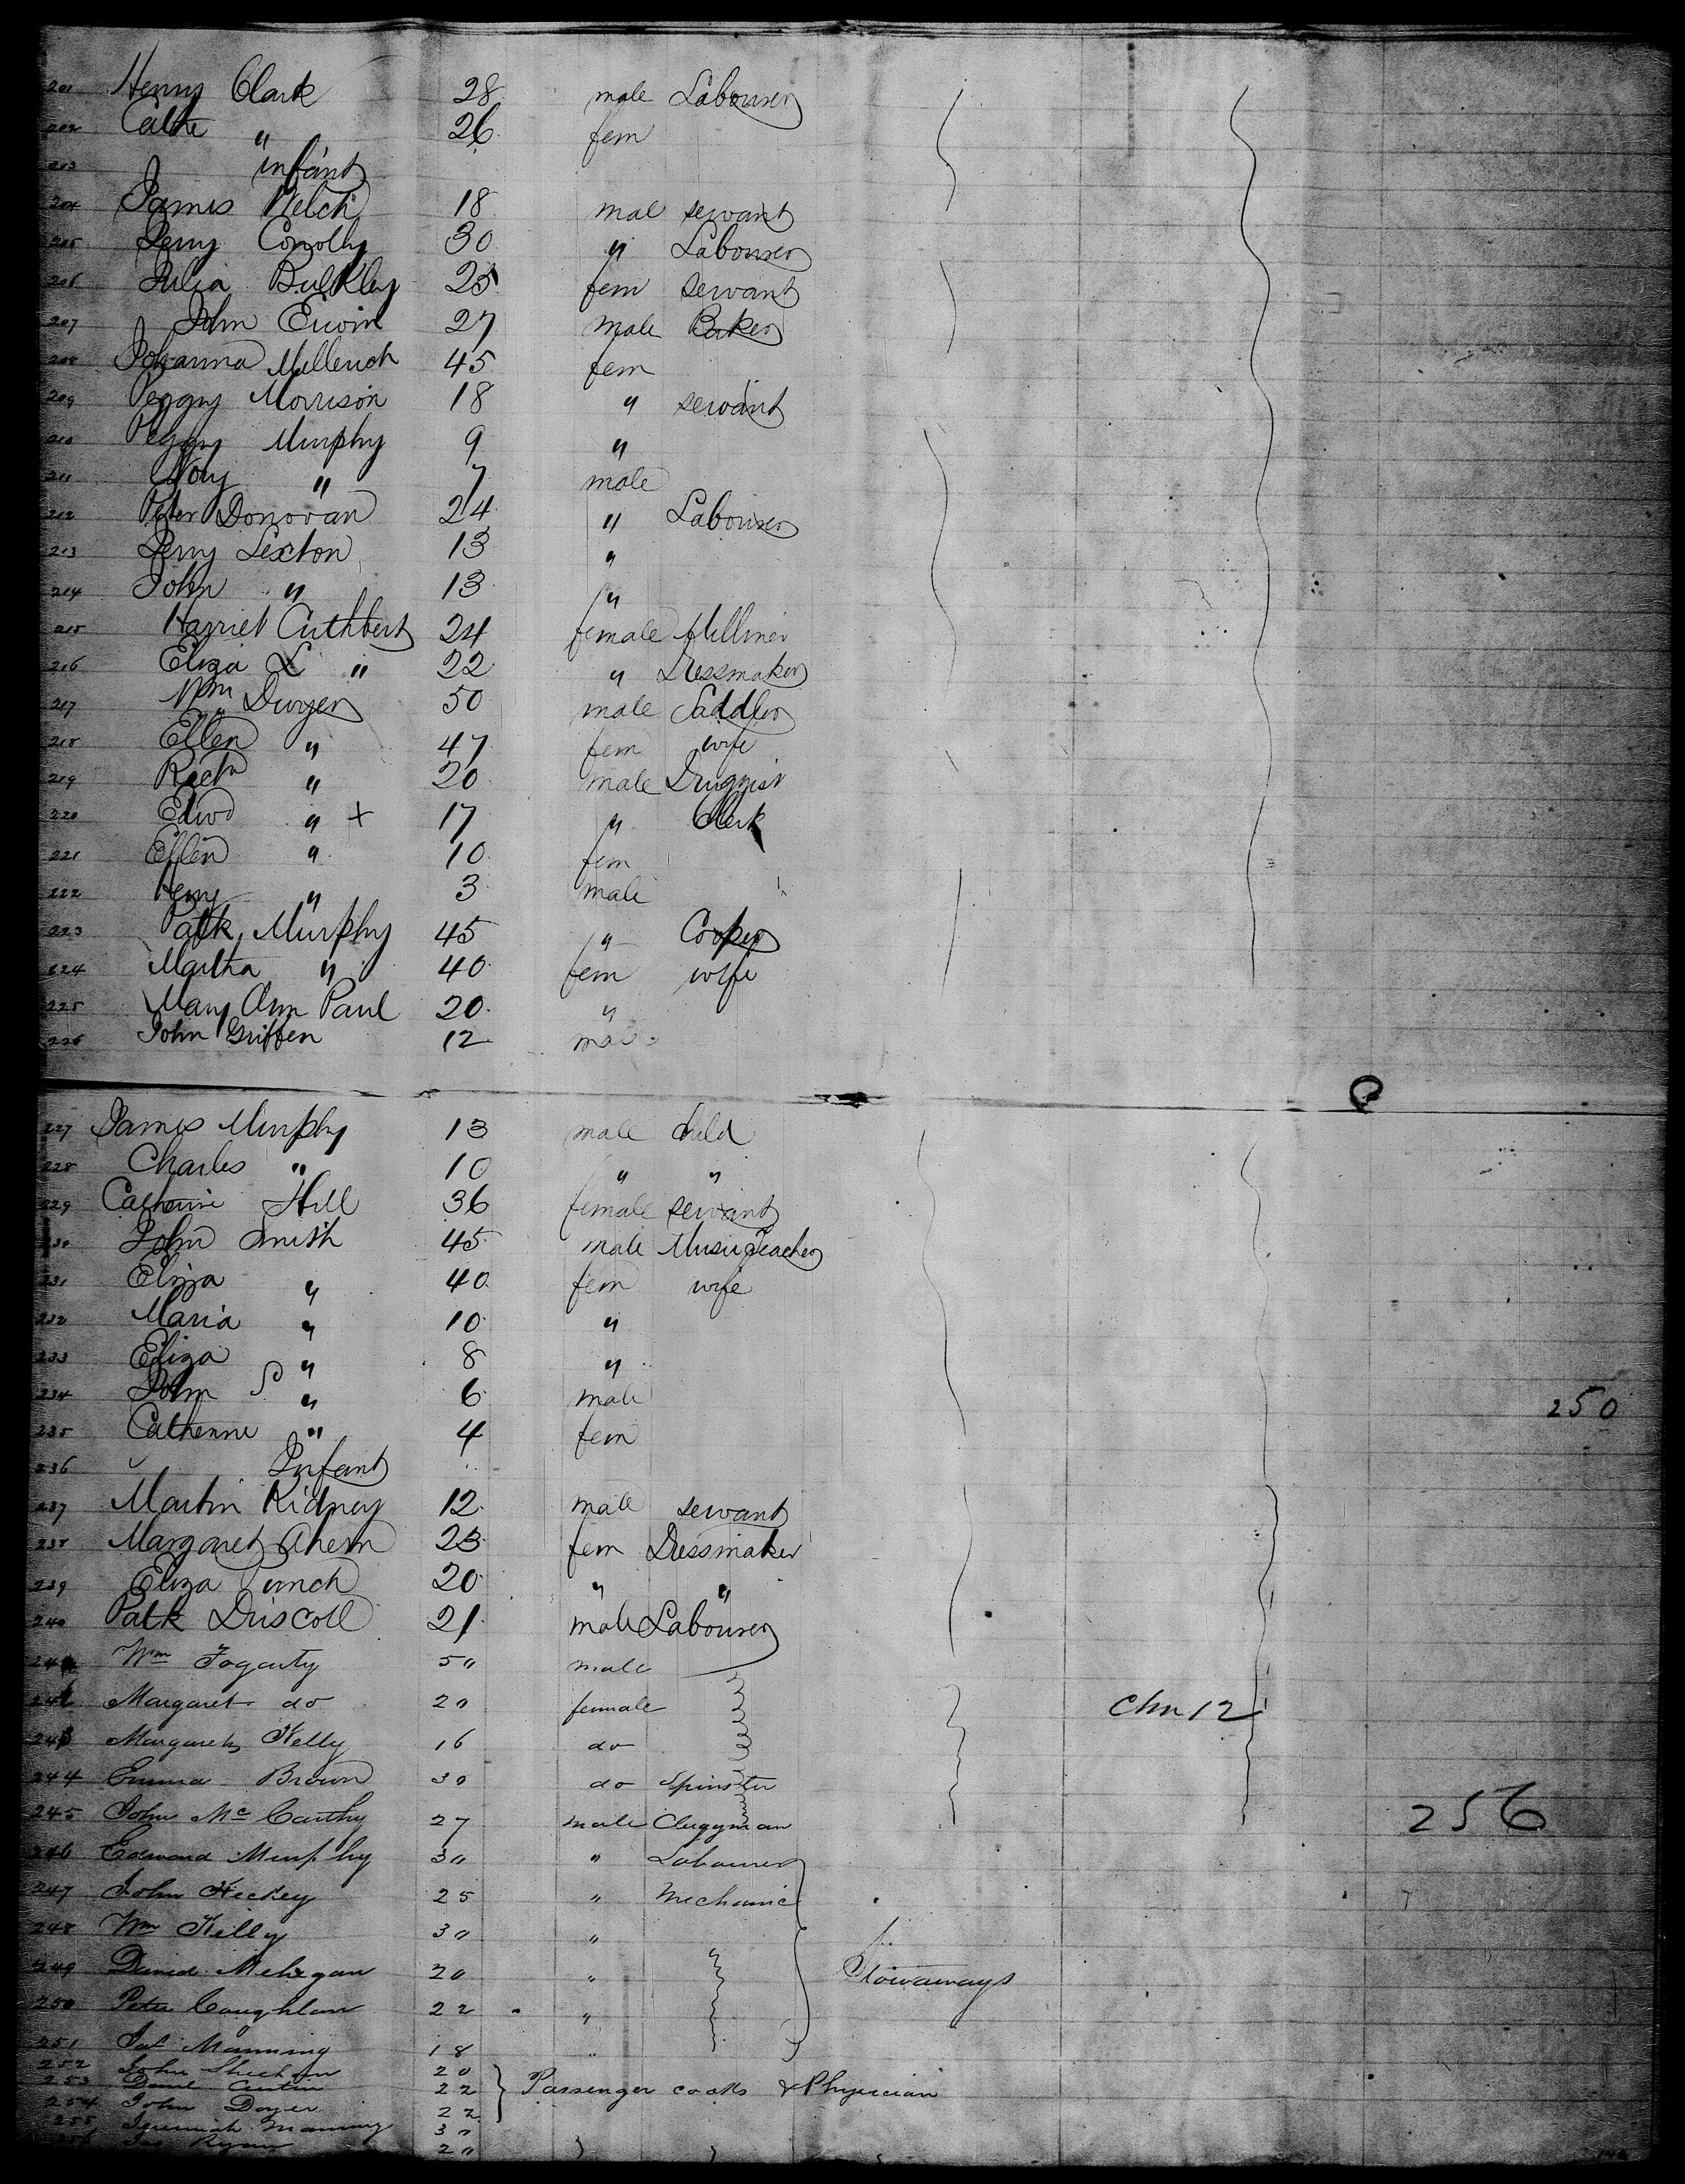 201 Henry Clark 28 male Labourer
202 Cathe " 26 fem
203 infant
204 James Welch 18 mal servant
205 Jerry Conolly 30 " Labourer
206 Julia Bulkley 25 fem servant
207 John Erwin 27 male Baker
208 Johanna 45 fem
209 Peggy Morrison 18 " servant
210 Peggy Murphy 9 "
211 Nory " 7 male
212 Peter Donovan 24 " Labourer
213 Jerry Sexton 13 "
214 John " 13 "
215 Harriet Cuthbert 24 female Milliner
216 Eliza L " 22 " Dressmaker
217 Wm Dwyer 50 male Saddler
218 Ellen " 47 fem wife
219 Richd " 20 male Druggist
220 Edwd " + 17 " Clerk
221 Ellen " 10 fem
222 Henry " 3 male
223 Patk Murphy 45 " Cooper
224 Martha " 40 fem wife
225 Mary Ann Paul 20 "
226 John Griffen 12 mal
227 James Murphy 13 male child
228 Charles " 10 " "
229 Catherine Hill 36 female servant
230 John Smith 45 male Music Teacher
231 Eliza " 40 fem wife
232 Maria " 10 "
233 Eliza " 8 "
234 John S " 6 male 250
235 Catherine " 4 fem
236 Infant
237 Martin Kidney 12 male servant
238 Margaret Ahern 23 fem Dressmaker
239 Eliza 20 " "
240 Patk Driscoll 21 male Labourer
241 Wm Fogarty 50 male
242 Margaret do 20 female Chn 12
243 Margaret Kelly 16 do
244 Emma Brown 30 do Spinster
245 John Mc Carthy 27 male Clergyman 256
246 Edward Murphy 30 " Labourer
247 John Hickey 25 " Mechanic
248 Wm Kelly 30 "
249 David Mehegan 20 " Stowaways
250 Peter Coughlan 22 "
251 Manning 18 "
252 John Sheehan 20
253 22 Passenger cooks & Physician
254 John Dwyer 22
255 Jeremiah Manning 30
256 Jas Ryan 20